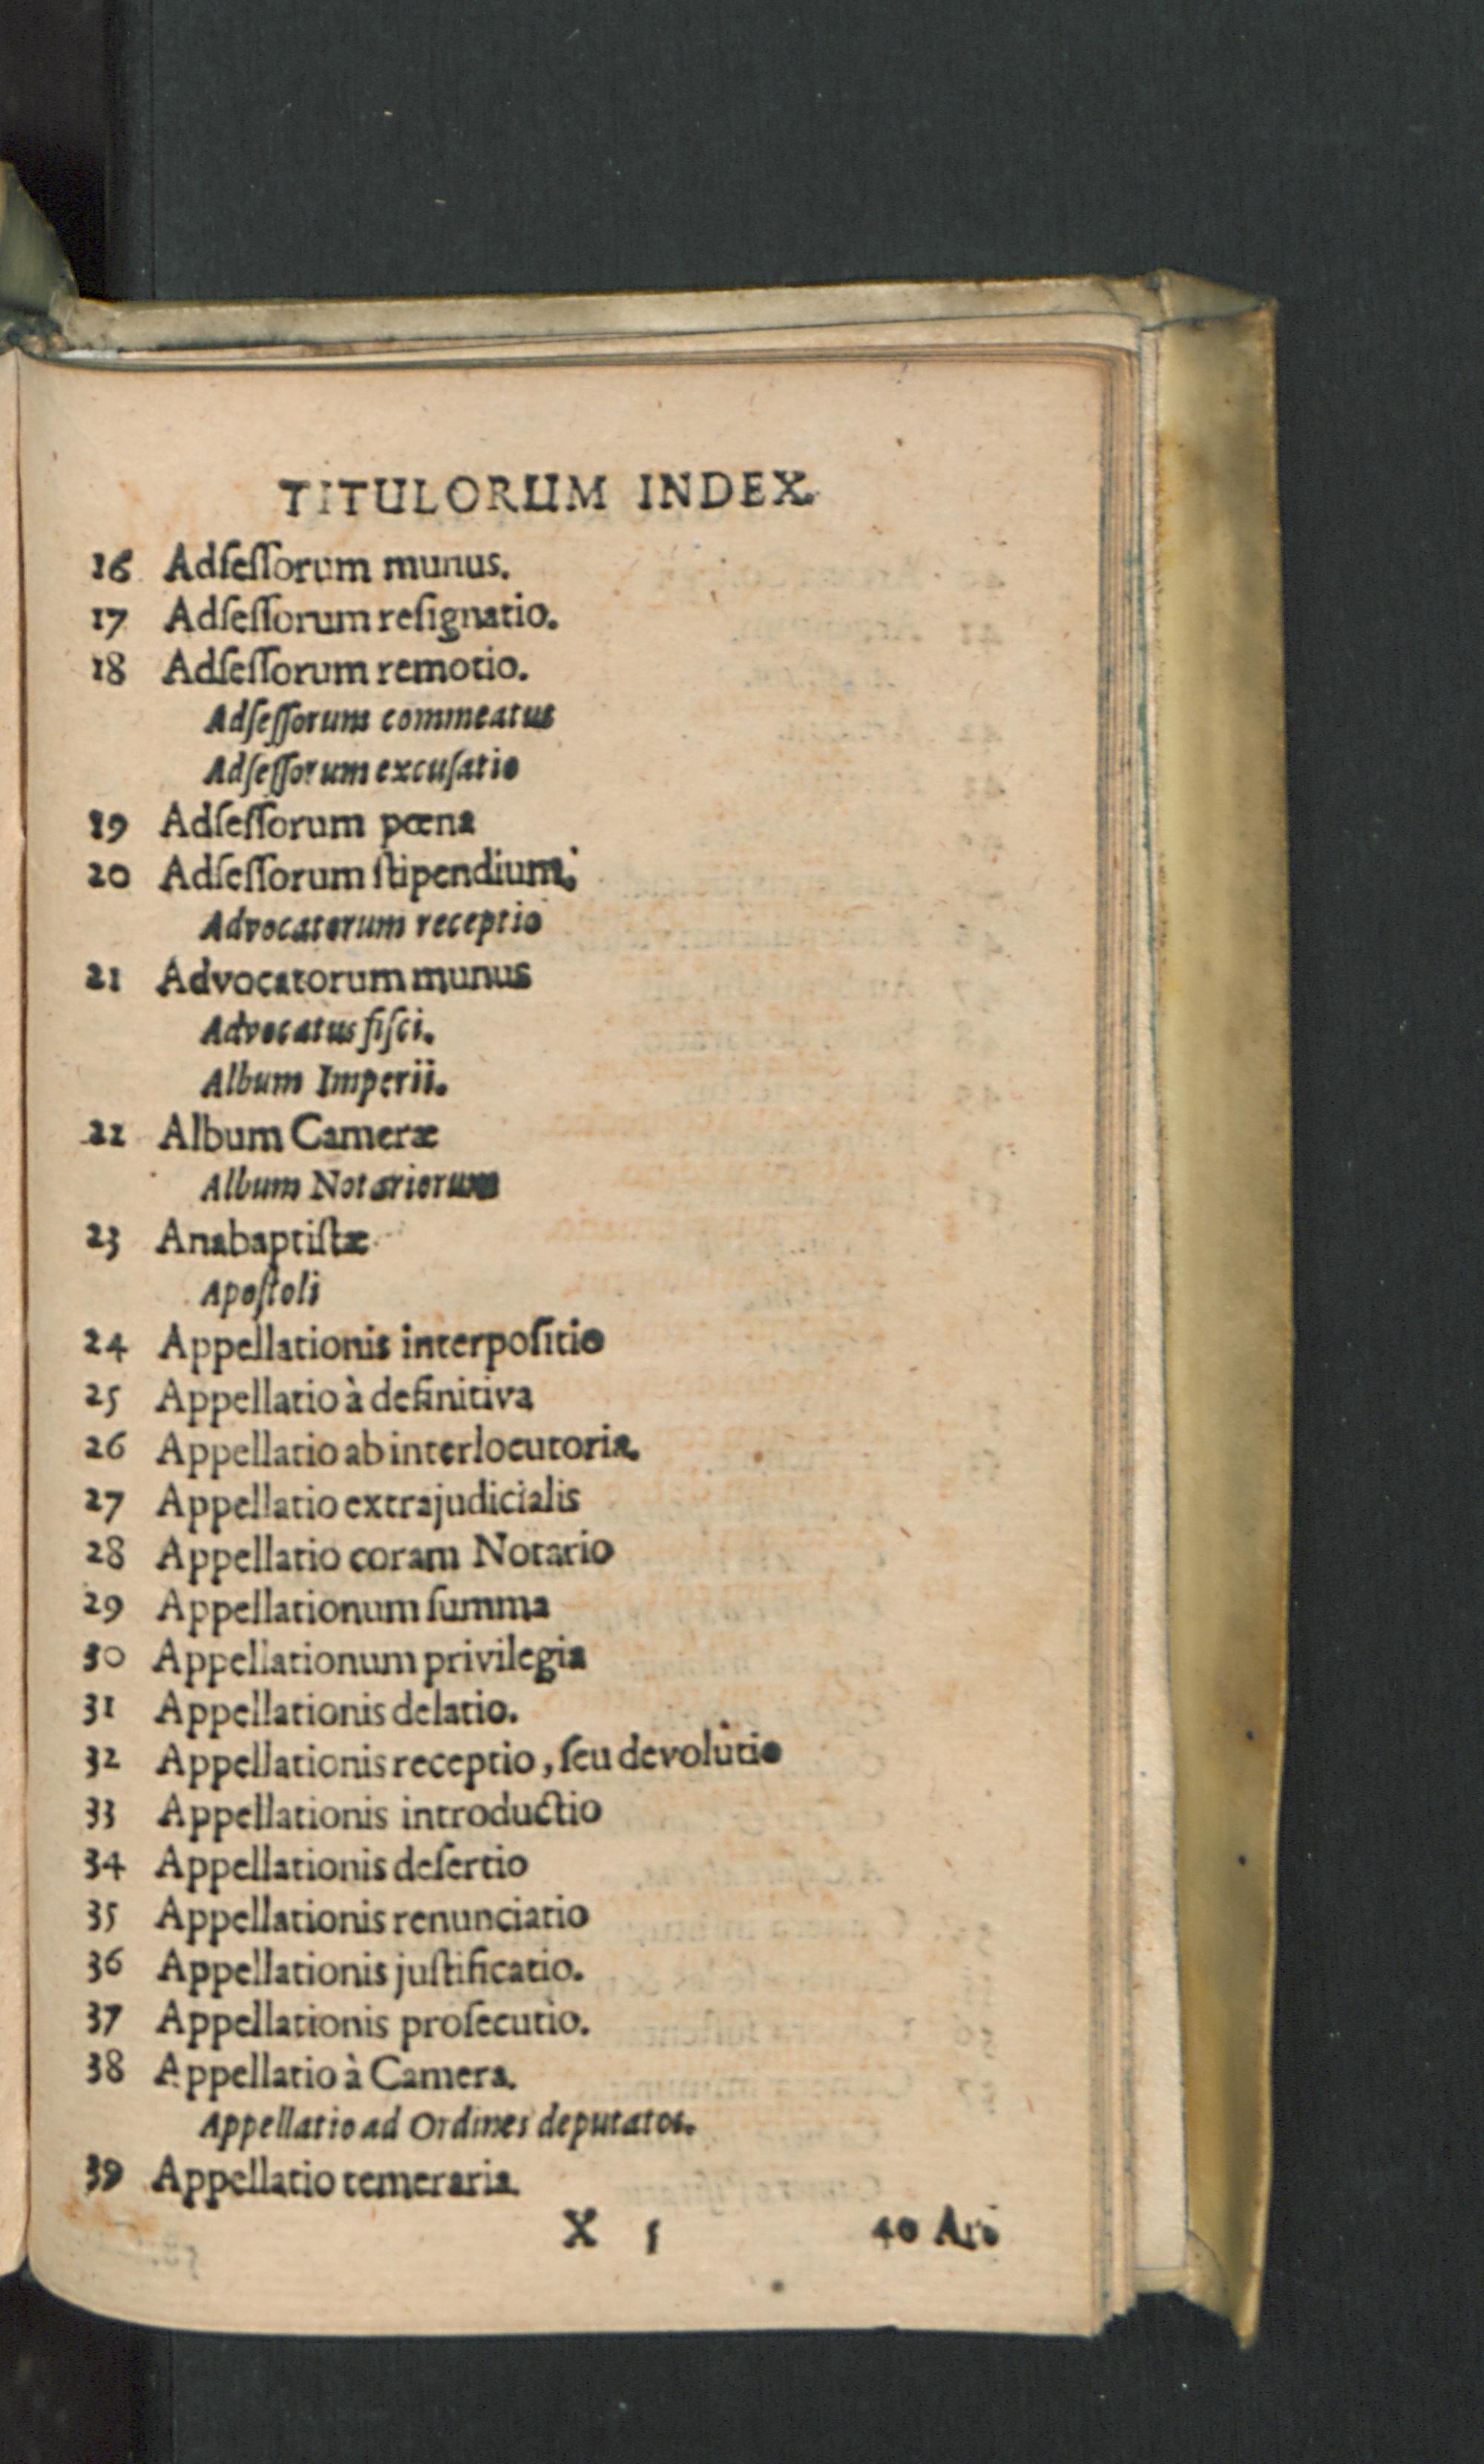 TITULORUM INDEX.
16 Adſeſſorum munus.
17 Adſeſſorum reſignatio.
18 Adſeſſorum remotio.
Adſeſſorum commeatus
Adſeſſorum excuſatio
19 Adſeſſorum pœna
20 Adſeſſorum ſtipendium.
Advocatorum receptio
21 Advocatorum munus
Advocatus fiſci.
Album Imperii.
22 Album Cameræ
Album Notariorum
23 Anabaptiſtæ
Apoſtoli
24 Appellationis interpoſitio
25 Appellatio à definitiva
26 Appellatio ab interlocutoria.
27 Appellatio extrajudicialis
28 Appellatio coram Notario
29 Appellationum ſumma
30 Appellationum privilegia
31 Appellationis delatio.
32 Appellationis receptio, ſeu devolutio
33 Appellationis introductio
34 Appellationis deſertio
35 Appellationis renunciatio
36 Appellationis juſtificatio.
37 Appellationis proſecutio.
38 Appellatio à Camera.
Appellatio ad Ordines deputatos.
39 Appellatio temeraria.
X 40 Ar-